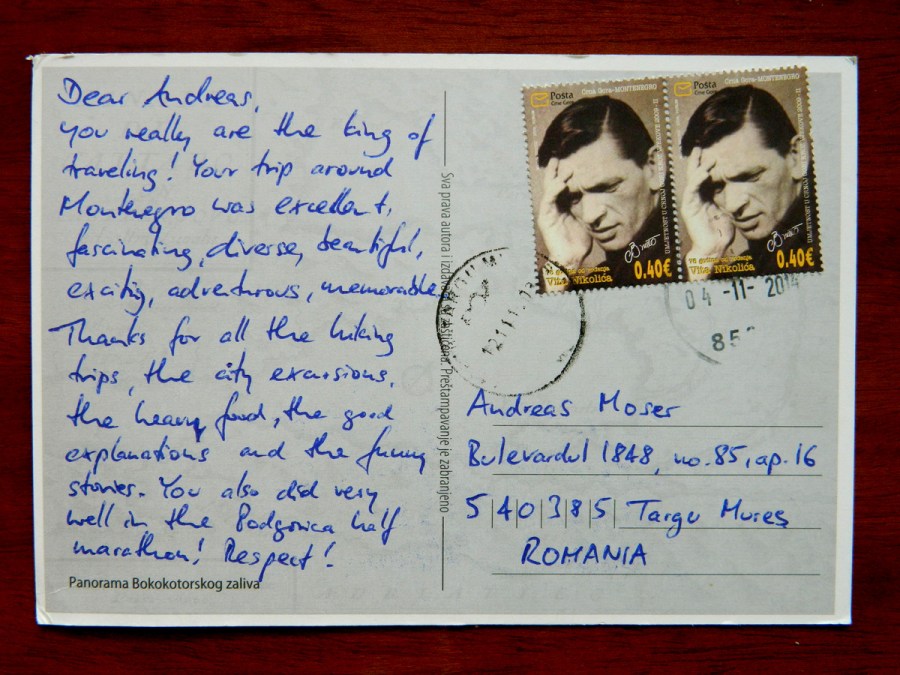 Dear Andreas,
you really are the king of
traveling! Your trip around
Montenegro was excellent,
fascinating, diverse, beautiful,
exciting, adventurous, memorable.
Thanks for all the hiking
trips, the city excursions,
the heavy food, the good
explanations and the funny
stories. You also did very
well in the Podgorica half
marathon! Respect!
Panorama Bokokotorskog zaliva
Sva prava autora i zaštićena. Preštampavanje je zabranjeno
Pošta
Crne Gore
Crna Gora-MONTENEGRO
Vita Nikolića
0.40€
Pošta
Crne Gore
Crna Gora-MONTENEGRO
Vita Nikolića
0.40€
04 -11- 2014
85
Andreas Moser
Bulevardul 1848, no. 85, ap. 16
540385 Targu Mures
ROMANIA